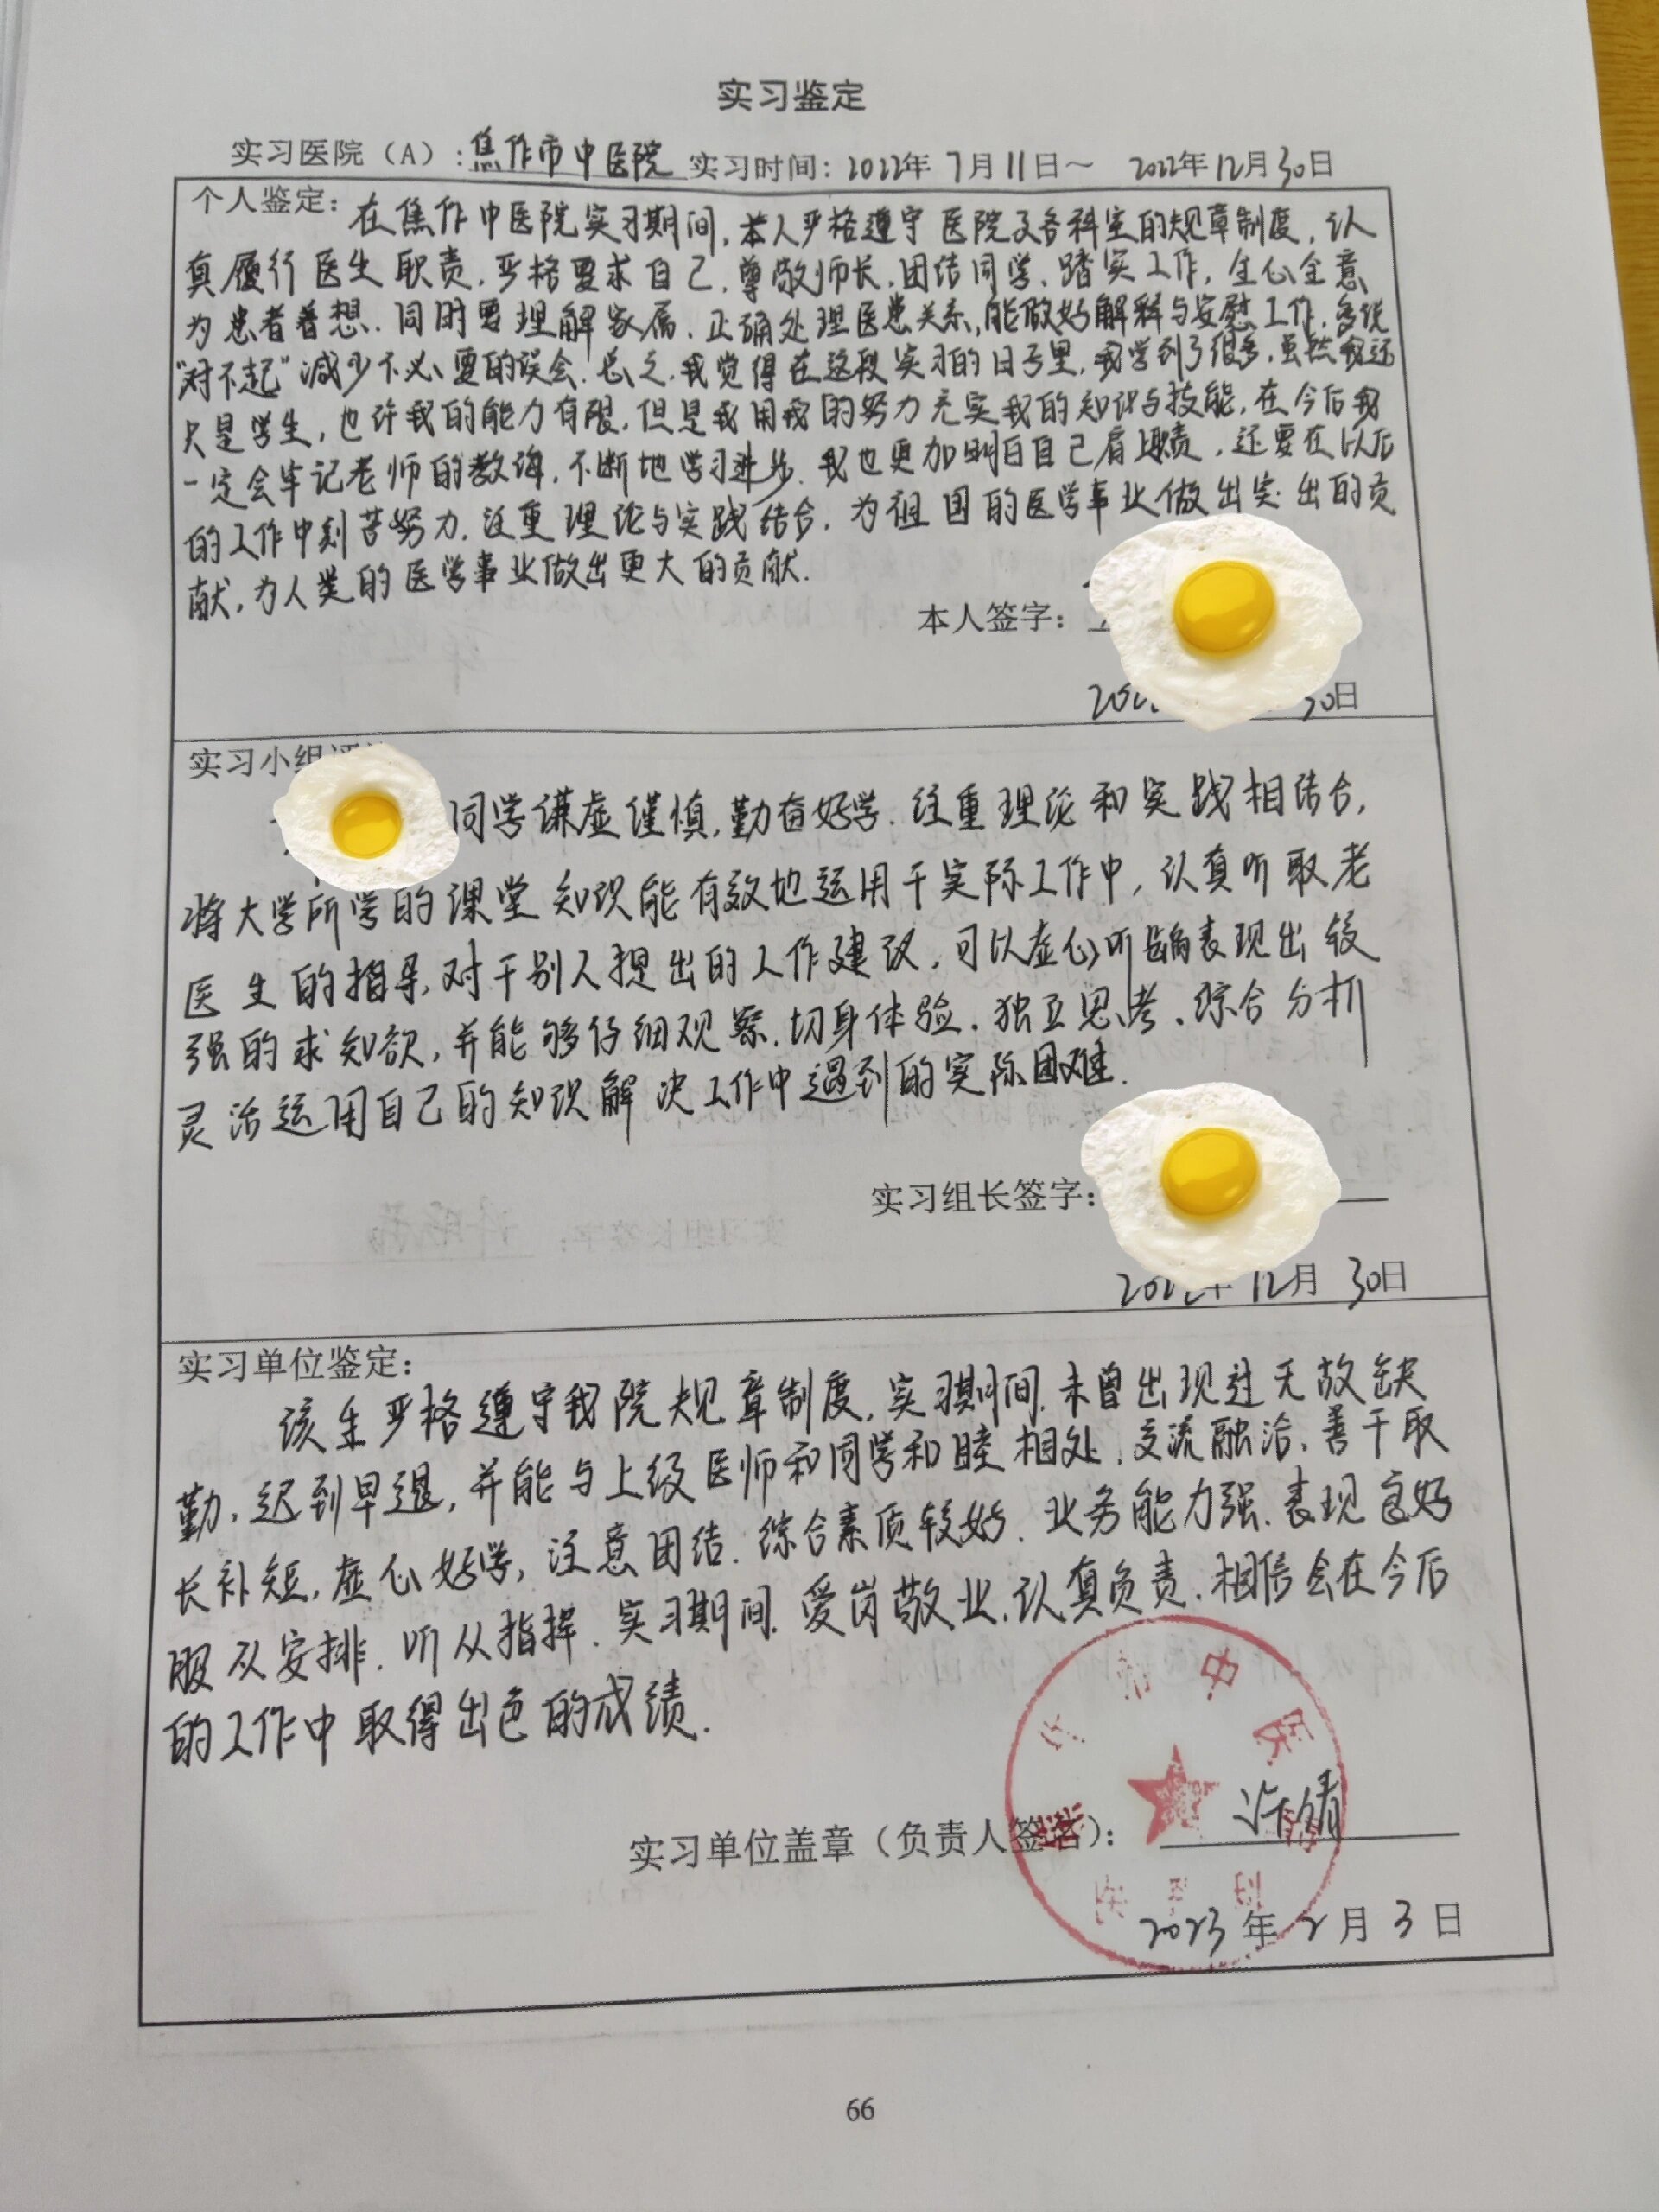 实习鉴定
实习医院（A）：焦作市中医院 实习时间：2022年 7月 11日～ 2022年12月30日
个人鉴定：在焦作中医院实习期间，本人严格遵守医院及各科室的规章制度，认
真履行医生职责，严格要求自己，尊敬师长，团结同学，踏实工作，全心全意
为患者着想，同时要理解家属，正确处理医患关系，能做好解释与安慰工作，多说
“对不起”减少不必要的误会，总之，我觉得在这段实习的日子里，我学到了很多，虽然我还
只是学生，也许我的能力有限，但是我用我的努力充实我的知识与技能，在今后我
一定会牢记老师的教诲，不断地学习进步，我也更加明白自己肩上职责，还要在以后
的工作中刻苦努力，注重理论与实践结合，为祖国的医学事业做出突出的贡
献，为人类的医学事业做出更大的贡献.
本人签字：
30日
实习小组
同学谦虚谨慎，勤奋好学，注重理论和实践相结合，
将大学所学的课堂知识能有效地运用于实际工作中，认真听取老
医生的指导，对于别人提出的工作建议，可以虚心听 表现出较
强的求知欲，并能够仔细观察、切身体验、独立思考、综合分析
灵活运用自己的知识解决工作中遇到的实际困难.
实习组长签字：
12月 30日
实习单位鉴定：
该生严格遵守我院规章制度，实习期间，未曾出现过无故缺
勤，迟到早退，并能与上级医师和同学和睦相处，交流融洽、善于取
长补短，虚心好学，注意团结，综合素质较好，业务能力强、表现良好
服从安排，听从指挥，实习期间，爱岗敬业，认真负责，相信会在今后
的工作中取得出色的成绩.
中医
实习单位盖章（负责人签名）： 许倩
2023年 2月 3日
66